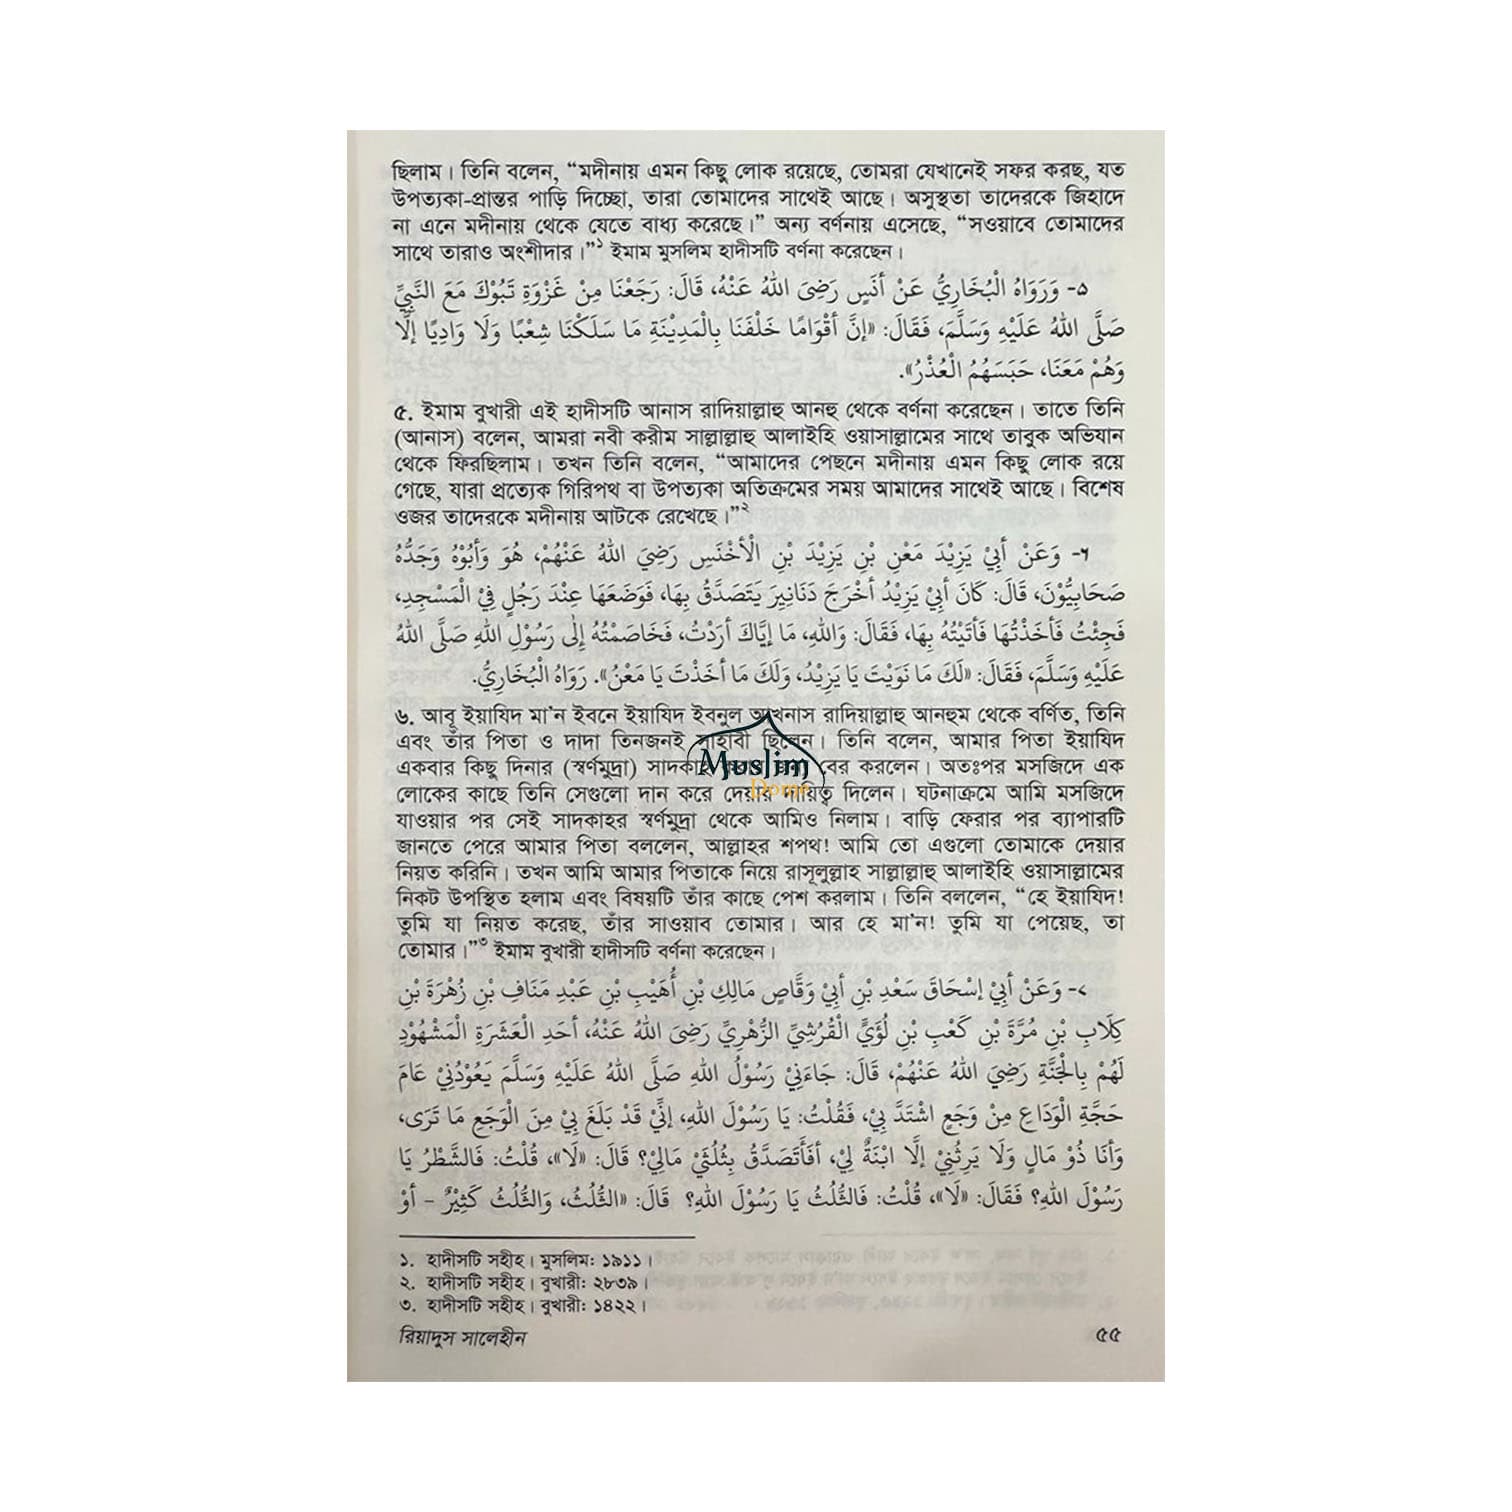 ছিলাম। তিনি বলেন, “মদীনায় এমন কিছু লোক রয়েছে, তোমরা যেখানেই সফর করছ, যত
উপত্যকা-প্রান্তর পাড়ি দিচ্ছো, তারা তোমাদের সাথেই আছে। অসুস্থতা তাদেরকে জিহাদে
না এনে মদীনায় থেকে যেতে বাধ্য করেছে।” অন্য বর্ণনায় এসেছে, “সওয়াবে তোমাদের
সাথে তারাও অংশীদার।”১ ইমাম মুসলিম হাদীসটি বর্ণনা করেছেন।
৫- وَرَوَاهُ الْبُخَارِيُّ عَنْ أَنَسٍ رَضِىَ اللهُ عَنْهُ، قَالَ: رَجَعْنَا مِنْ غَزْوَةِ تَبُوْكَ مَعَ النَّبِيِّ
صَلَّى اللهُ عَلَيْهِ وَسَلَّمَ، فَقَالَ: «إِنَّ أَقْوَامًا خَلْفَنَا بِالْمَدِيْنَةِ مَا سَلَكْنَا شِعْبًا وَلَا وَادِيًا إِلَّا
وَهُمْ مَعَنَا، حَبَسَهُمُ الْعُذْرُ».
৫. ইমাম বুখারী এই হাদীসটি আনাস রাদিয়াল্লাহু আনহু থেকে বর্ণনা করেছেন। তাতে তিনি
(আনাস) বলেন, আমরা নবী করীম সাল্লাল্লাহু আলাইহি ওয়াসাল্লামের সাথে তাবুক অভিযান
থেকে ফিরছিলাম। তখন তিনি বলেন, “আমাদের পেছনে মদীনায় এমন কিছু লোক রয়ে
গেছে, যারা প্রত্যেক গিরিপথ বা উপত্যকা অতিক্রমের সময় আমাদের সাথেই আছে। বিশেষ
ওজর তাদেরকে মদীনায় আটকে রেখেছে।”২
৬- وَعَنْ أَبِيْ يَزِيْدَ مَعْنِ بْنِ يَزِيْدَ بْنِ الْأَخْنَسِ رَضِيَ اللهُ عَنْهُمْ، هُوَ وَأَبُوْهُ وَجَدُّهُ
صَحَابِيُّوْنَ، قَالَ: كَانَ أَبِيْ يَزِيْدُ أَخْرَجَ دَنَانِيرَ يَتَصَدَّقُ بِهَا، فَوَضَعَهَا عِنْدَ رَجُلٍ فِيْ الْمَسْجِدِ،
فَجِئْتُ فَأَخَذْتُهَا فَأَتَيْتُهُ بِهَا، فَقَالَ: وَاللهِ، مَا إِيَّاكَ أَرَدْتُ، فَخَاصَمْتُهُ إِلَى رَسُوْلِ اللهِ صَلَّى اللهُ
عَلَيْهِ وَسَلَّمَ، فَقَالَ: «لَكَ مَا نَوَيْتَ يَا يَزِيْدُ، وَلَكَ مَا أَخَذْتَ يَا مَعْنُ». رَوَاهُ الْبُخَارِيُّ.
৬. আবূ ইয়াযিদ মা'ন ইবনে ইয়াযিদ ইবনুল আখনাস রাদিয়াল্লাহু আনহুম থেকে বর্ণিত, তিনি
এবং তাঁর পিতা ও দাদা তিনজনই সাহাবী ছিলেন। তিনি বলেন, আমার পিতা ইয়াযিদ
একবার কিছু দিনার (স্বর্ণমুদ্রা) সাদকাহ বের করলেন। অতঃপর মসজিদে এক
Muslim Dome
লোকের কাছে তিনি সেগুলো দান করে দেয়ার দায়িত্ব দিলেন। ঘটনাক্রমে আমি মসজিদে
যাওয়ার পর সেই সাদকাহর স্বর্ণমুদ্রা থেকে আমিও নিলাম। বাড়ি ফেরার পর ব্যাপারটি
জানতে পেরে আমার পিতা বললেন, আল্লাহর শপথ! আমি তো এগুলো তোমাকে দেয়ার
নিয়ত করিনি। তখন আমি আমার পিতাকে নিয়ে রাসূলুল্লাহ সাল্লাল্লাহু আলাইহি ওয়াসাল্লামের
নিকট উপস্থিত হলাম এবং বিষয়টি তাঁর কাছে পেশ করলাম। তিনি বললেন, “হে ইয়াযিদ!
তুমি যা নিয়ত করেছ, তাঁর সাওয়াব তোমার। আর হে মা'ন! তুমি যা পেয়েছ, তা
তোমার।”৩ ইমাম বুখারী হাদীসটি বর্ণনা করেছেন।
৭- وَعَنْ أَبِيْ إِسْحَاقَ سَعْدِ بْنِ أَبِيْ وَقَّاصٍ مَالِكِ بْنِ أُهَيْبِ بْنِ عَبْدِ مَنَافِ بْنِ زُهْرَةَ بْنِ
كِلَابِ بْنِ مُرَّةَ بْنِ كَعْبِ بْنِ لُؤَيٍّ الْقُرَشِيِّ الزُّهْرِيِّ رَضِىَ اللهُ عَنْهُ، أَحَدِ الْعَشَرَةِ الْمَشْهُوْدِ
لَهُمْ بِالْجَنَّةِ رَضِيَ اللهُ عَنْهُمْ، قَالَ: جَاءَنِيْ رَسُوْلُ اللهِ صَلَّى اللهُ عَلَيْهِ وَسَلَّمَ يَعُوْدُنِيْ عَامَ
حَجَّةِ الْوَدَاعِ مِنْ وَجَعٍ اشْتَدَّ بِيْ، فَقُلْتُ: يَا رَسُوْلَ اللهِ، إِنِّيْ قَدْ بَلَغَ بِيْ مِنَ الْوَجَعِ مَا تَرَى،
وَأَنَا ذُوْ مَالٍ وَلَا يَرِثُنِيْ إِلَّا ابْنَةٌ لِيْ، أَفَأَتَصَدَّقُ بِثُلُثَيْ مَالِيْ؟ قَالَ: «لَا»، قُلْتُ: فَالشَّطْرُ يَا
رَسُوْلَ اللهِ؟ فَقَالَ: «لَا»، قُلْتُ: فَالثُّلُثُ يَا رَسُوْلَ اللهِ؟ قَالَ: «الثُّلُثُ، وَالثُّلُثُ كَثِيْرٌ - أَوْ
১. হাদীসটি সহীহ। মুসলিম: ১৯১১।
২. হাদীসটি সহীহ। বুখারী: ২৮৩৯।
৩. হাদীসটি সহীহ। বুখারী: ১৪২২।
রিয়াদুস সালেহীন ৫৫